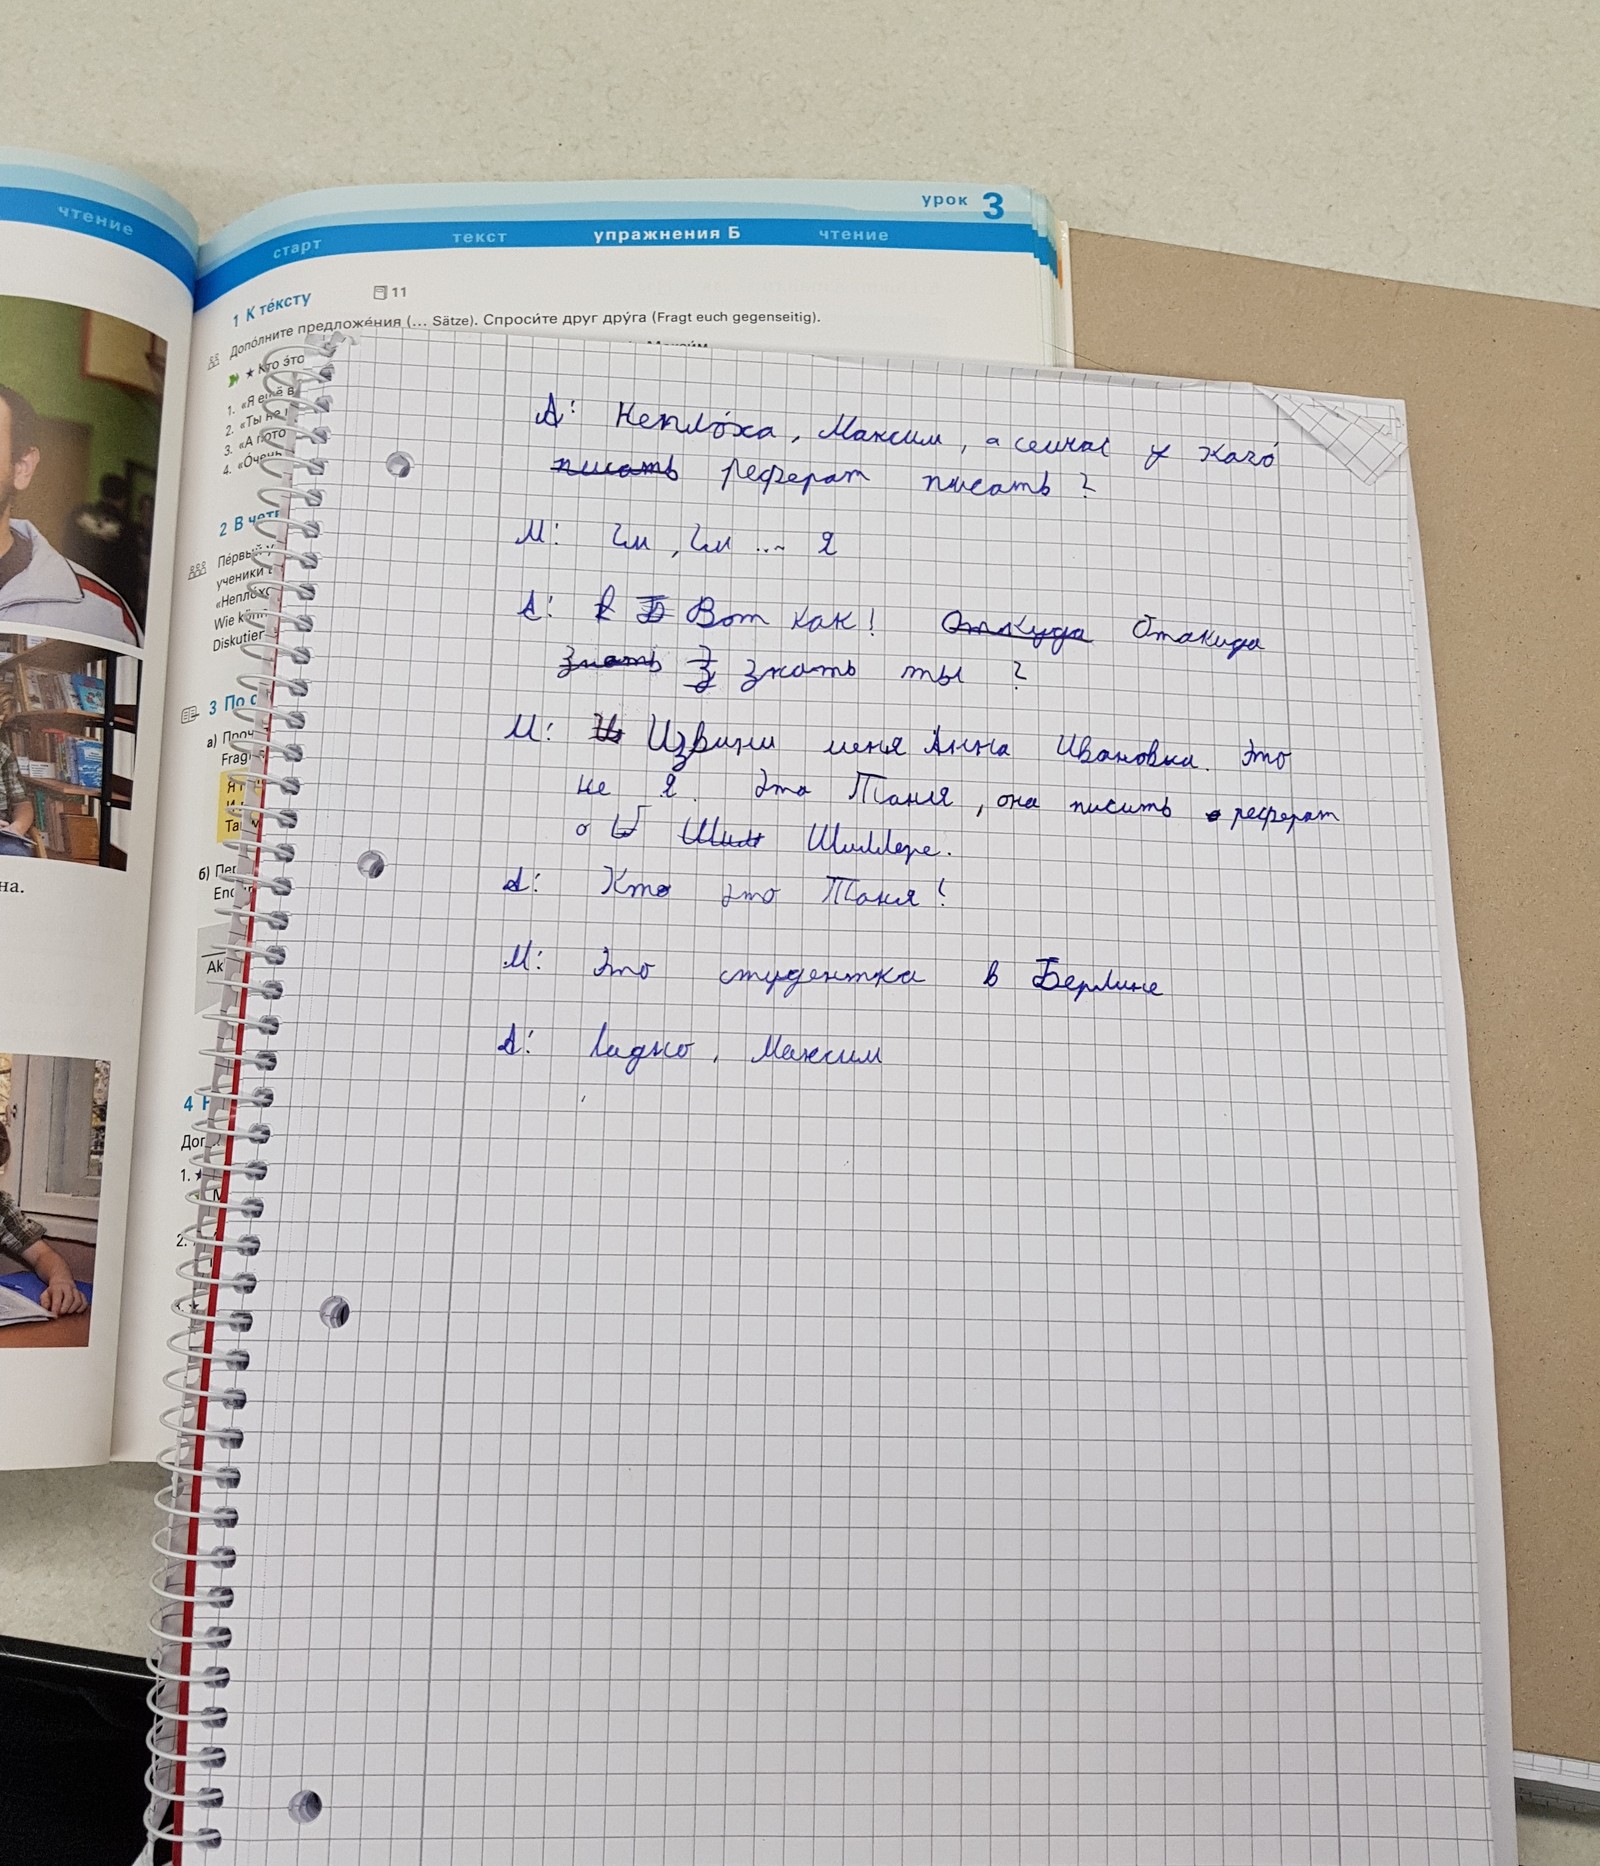 чтение
урок 3
старт текст упражнения Б чтение
1 К тéксту 11
Допóлните предложéния (... Sätze). Спроси́те друг дру́га (Fragt euch gegenseitig).
★ Кто э́то
1. «Я ещё в
2. «Ты не
3. «А пото
4. «О́чень
2 В четв
Пéрвый у
ученики
«Неплóхо
Wie könn
Diskutier
3 По с
а) Проч
Frag
Я
Та
б) Пер
Ak
на.
4
Доп
1. ★
2.
А: Неплóха, Максим, а сеичас у каго́
писать реферат писать?
М: Гм, Гм ... Я
А: Вот как! Откуда Отакуда
знать знать ты ?
М: Извини меня Анна Ивановна. Это
не я. Эта Таня, она писить реферат
о Шиллере.
А: Кто это Таня!
М: Это студентка в Берлине
А: Ладно, Максим